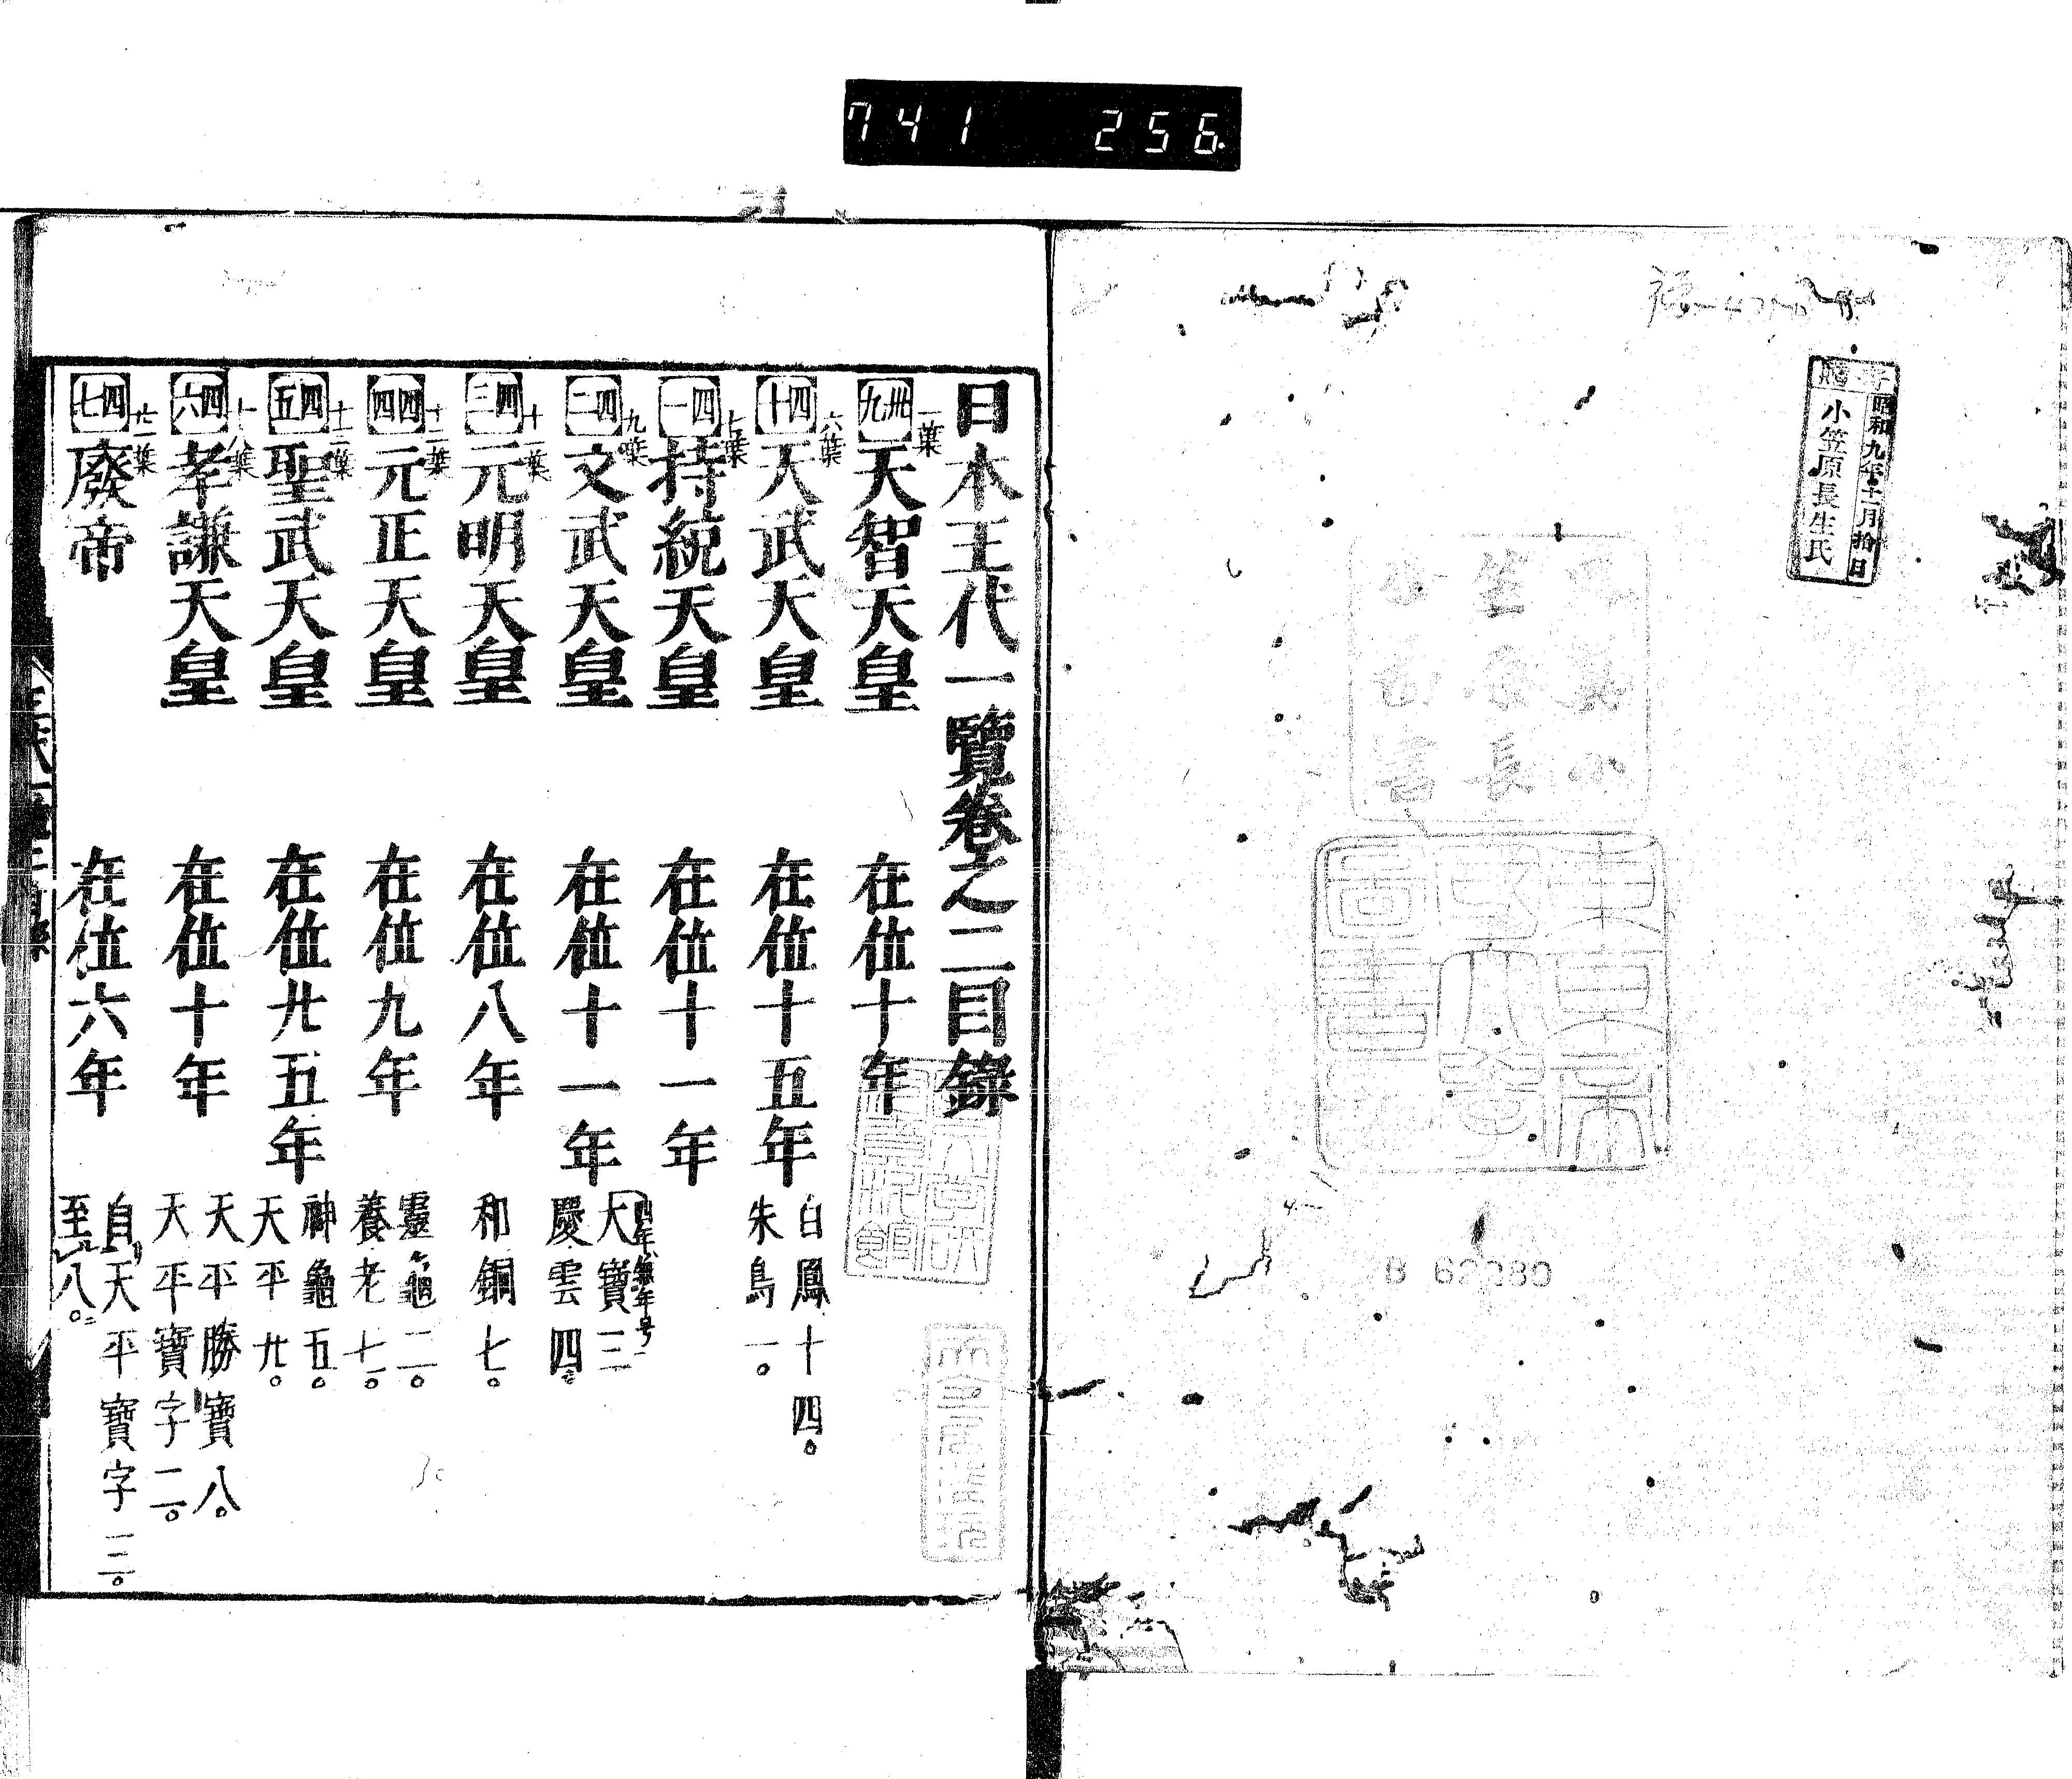 741 256
寄贈
昭和九年十一月拾日
小笠原長生氏
東京帝國大學圖書
B 62080
日本王代一覽卷之二目錄
卅九 一葉 天智天皇 在位十年
四十 六葉 天武天皇 在位十五年 白鳳十四 朱鳥一
四一 七葉 持統天皇 在位十一年
四二 九葉 文武天皇 在位十一年 四年無年号 大寶三 慶雲四
四三 十一葉 元明天皇 在位八年 和銅七
四四 十二葉 元正天皇 在位九年 靈龜二 養老七
四五 十三葉 聖武天皇 在位廿五年 神龜五 天平廿
四六 十八葉 孝謙天皇 在位十年 天平勝寶八 天平寶字二
四七 廿一葉 廢帝 在位六年 自天平寶字三 至八